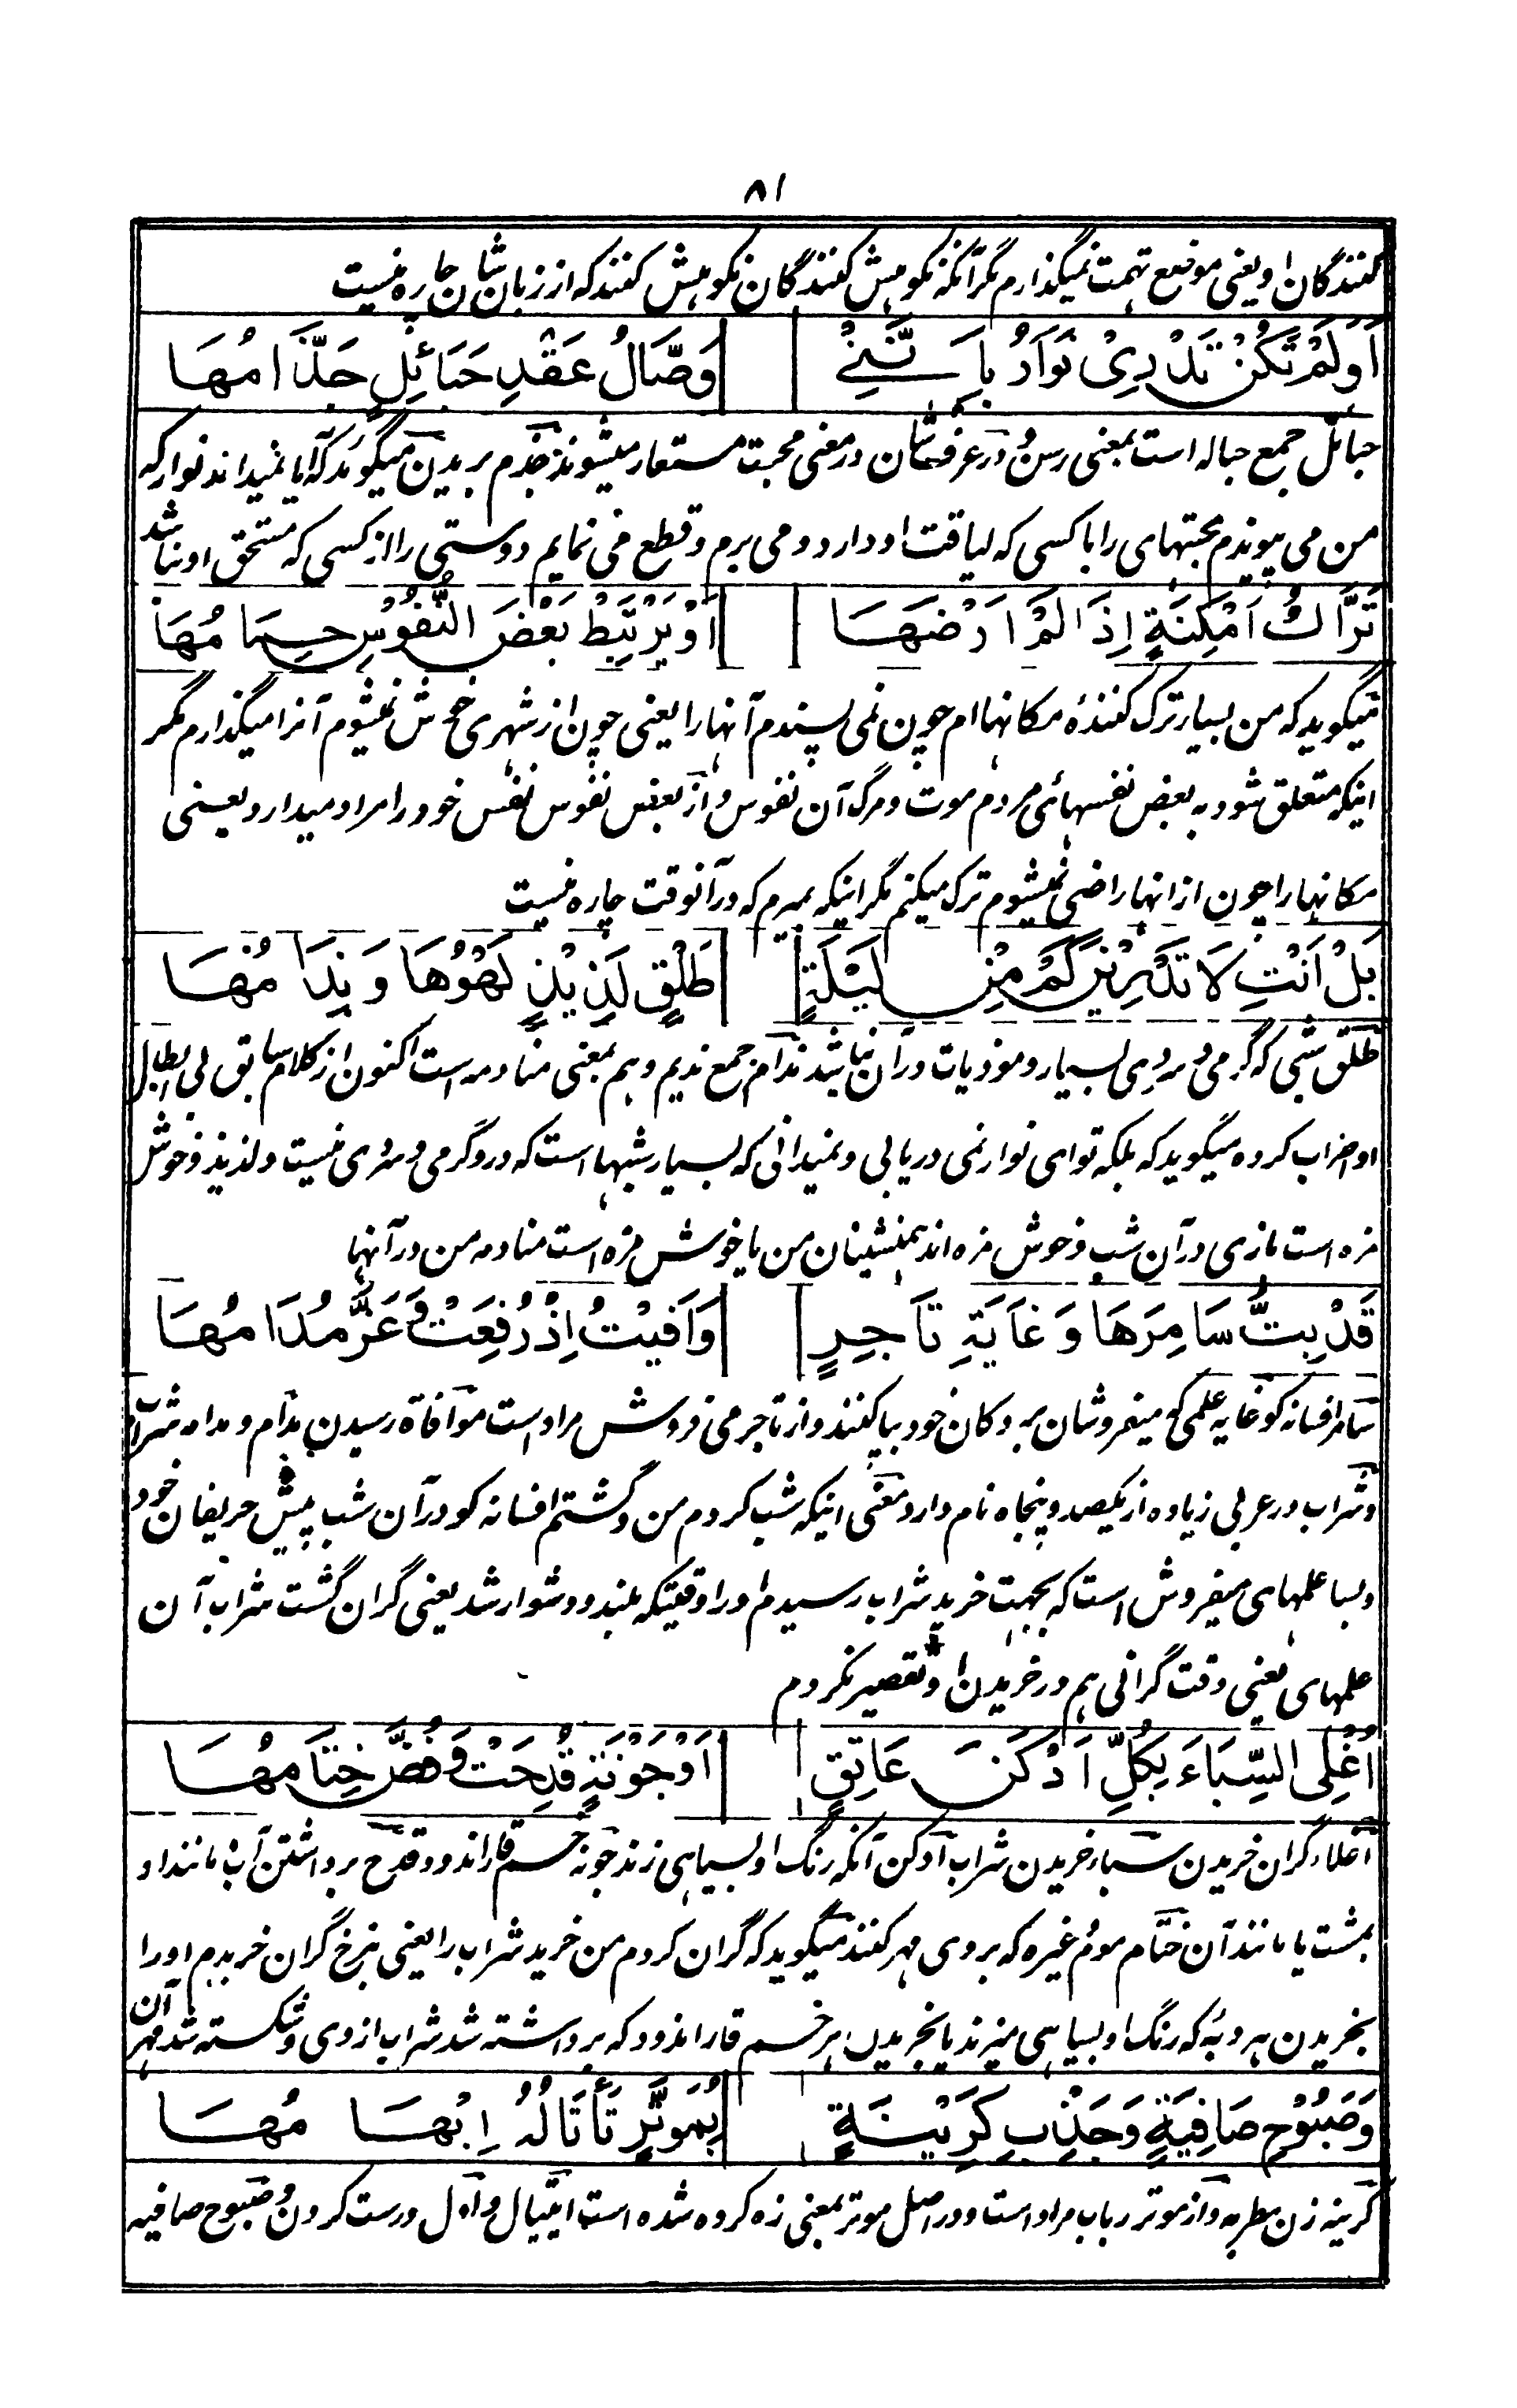 ٨١
کنندگان او یعنی موضع تهمت نمیگذارم مگر آنکه نکوهش کنندگان نکوهش کنند که از زبان شان چاره نیست
اَوَلَمْ تَكُنْ تَدْرِیْ نَوَارُ بِاَنَّنِیْ وَصَّالُ عَقْدِ حَبَائِلٍ جَذَّامُهَا
حبائل جمع حباله است بمعنی رسن و در عرف شان در معنی محبت مستعار میشوند جذم بریدن میگوید که آیا نمیداند نوار که
من می پیوندم محبتهای را با کسی که لیاقت او دارد و می برم و قطع می نمایم دوستی را از کسی که مستحق او نباشد
تَرَّاكُ اَمْكِنَةٍ اِذَا لَمْ اَرْضَهَا اَوْ يَرْتَبِطْ بَعْضَ النُّفُوْسِ حِمَامُهَا
میگوید که من بسیار ترک کنندهٔ مکانها ام چون نمی پسندم آنها را یعنی چون از شهری خوش نمیشوم آنرا میگذارم مگر
اینکه متعلق شود به بعض نفسهای مردم موت و مرگ آن نفوس و از بعض نفوس نفس خود را مراد میدارد یعنی
مکانها را چون از انها راضی نمیشوم ترک میکنم مگر اینکه بمیرم که در آنوقت چاره نیست
بَلْ اَنْتِ لَا تَدْرِيْنَ كَمْ مِنْ لَيْلَةٍ طَلْقٍ لَذِيْذٍ لَهْوُهَا وَنِدَامُهَا
طلق شبی که گرمی و سردی بسیار و موذیات در آن نباشد ندام جمع ندیم و هم بمعنی منادمه است اکنون از کلام سابق بی ابطال
او اضراب کرده میگوید که بلکه تو ای نوار نمی دریابی و نمیدانی که بسیار شبها است که درو گرمی و سردی نیست و لذیذ و خوش
مزه است بازی در آن شب و خوش مزه اند همنشینان من یا خوش مزه است منادمه من در آنها
قَدْ بِتُّ سَامِرَهَا وَغَايَةِ تَاجِرٍ وَافَيْتُ اِذْ رُفِعَتْ وَعَزَّ مُدَامُهَا
سامر افسانه گو غایه علمی که میفروشان بر دوکان خود بپا کنند و از تاجر می فروش مراد است موافاة رسیدن مدام و مدامه شراب
و شراب در عربی زیاده از یکصد و پنجاه نام دارد معنی اینکه شب کردم من و گشتم افسانه گو در آن شب پیش حریفان خود
و بسا علمهای میفروش است که بجهت خرید شراب رسیدم او را وقتیکه بلند و دشوار شد یعنی گران گشت شراب آن
علمهای یعنی وقت گرانی هم در خریدن او تقصیر نکردم
اُغْلِی السِّبَاءَ بِكُلِّ اَدْكَنَ عَاتِقٍ اَوْ جَوْنَةٍ قُدِحَتْ وَفُضَّ خِتَامُهَا
اغلاء گران خریدن سباء خریدن شراب ادکن آنکه رنگ او بسیاهی زند جونه خم قار اندود قدح برداشتن آب مانند او
بمشت یا مانند آن ختام موم و غیره که بروی مهر کنند میگوید که گران کردم من خرید شراب را یعنی بنرخ گران خریدم او را
بخریدن هر دبّه که رنگ او بسیاهی میزند یا بخریدن هر خم قار اندود که برداشته شد شراب از وی و شکسته شد مهر آن
وَصَبُوْحِ صَافِيَةٍ وَجَذْبِ كَرِيْنَةٍ بِمُوَتَّرٍ تَأْتَالُهُ اِبْهَامُهَا
کرینه زن مطربه و از موتر رباب مراد است و در اصل موتر بمعنی زه کرده شده است ائتیال و اول درست کردن و صبوح صافیه